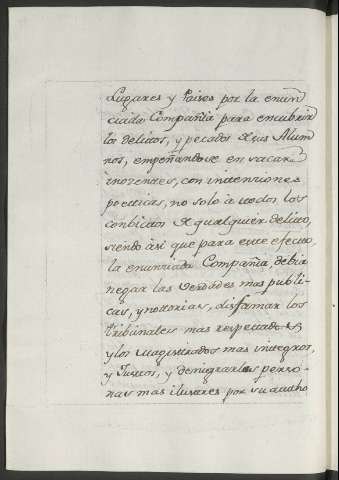 Lugares y Paises por la enun
ciada Compañia para encubrir
los delitos, y pecados de sus Alum
nos, empeñandose en sacar
inozentes, con inttenciones
poetticas, no solo â ttodos los
conbictos de qualquier delito,
siendo asi que para este efecto,
la enunciada Compañia, debia
negar las verdades mas publi-
cas, y nottorias, disfamar los
tribunales mas respettados
y los magistrados mas inttegros,
y Justos, y denigrar las perso-
nas mas ilustres por su